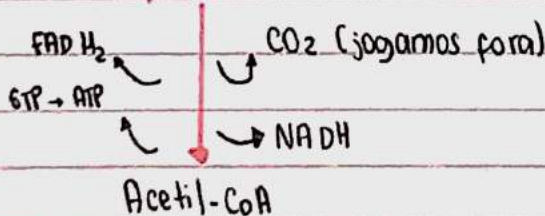 FADH₂ CO₂ (jogamos fora)
GTP → ATP
NADH
Acetil-CoA